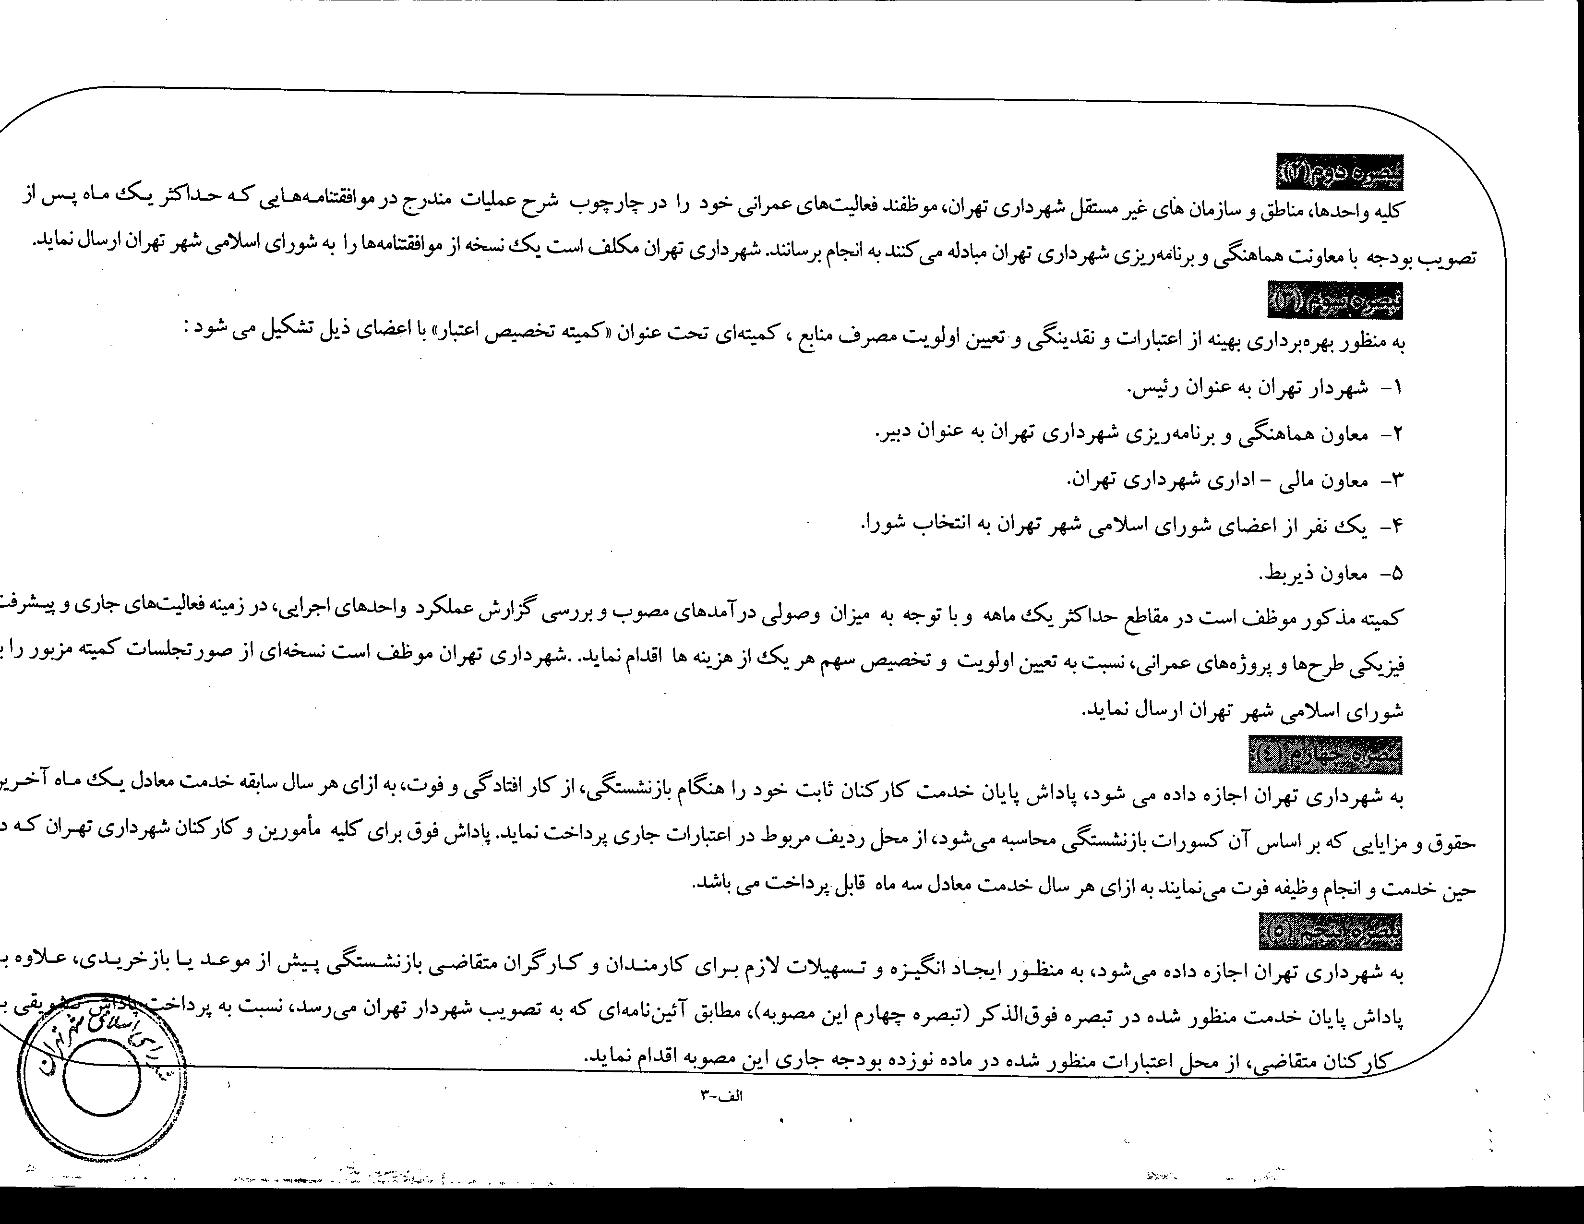 تبصره دوم(۲):
کلیه واحدها، مناطق و سازمان های غیر مستقل شهرداری تهران، موظفند فعالیت‌های عمرانی خود را در چارچوب شرح عملیات مندرج در موافقتنامه‌هایی که حداکثر یک ماه پس از
تصویب بودجه با معاونت هماهنگی و برنامه‌ریزی شهرداری تهران مبادله می‌کنند به انجام برسانند. شهرداری تهران مکلف است یک نسخه از موافقتنامه‌ها را به شورای اسلامی شهر تهران ارسال نماید.
تبصره سوم(۳):
به منظور بهره‌برداری بهینه از اعتبارات و نقدینگی و تعیین اولویت مصرف منابع ، کمیته‌ای تحت عنوان «کمیته تخصیص اعتبار» با اعضای ذیل تشکیل می شود :
۱- شهردار تهران به عنوان رئیس.
۲- معاون هماهنگی و برنامه‌ریزی شهرداری تهران به عنوان دبیر.
۳- معاون مالی – اداری شهرداری تهران.
۴- یک نفر از اعضای شورای اسلامی شهر تهران به انتخاب شورا.
۵- معاون ذیربط.
کمیته مذکور موظف است در مقاطع حداکثر یک ماهه و با توجه به میزان وصولی درآمدهای مصوب و بررسی گزارش عملکرد واحدهای اجرایی، در زمینه فعالیت‌های جاری و پیشرفت
فیزیکی طرح‌ها و پروژه‌های عمرانی، نسبت به تعیین اولویت و تخصیص سهم هر یک از هزینه ها اقدام نماید. .شهرداری تهران موظف است نسخه‌ای از صورتجلسات کمیته مزبور را
شورای اسلامی شهر تهران ارسال نماید.
تبصره چهارم (٤):
به شهرداری تهران اجازه داده می شود، پاداش پایان خدمت کارکنان ثابت خود را هنگام بازنشستگی، از کار افتادگی و فوت، به ازای هر سال سابقه خدمت معادل یک ماه آخرین
حقوق و مزایایی که بر اساس آن کسورات بازنشستگی محاسبه می‌شود، از محل ردیف مربوط در اعتبارات جاری پرداخت نماید. پاداش فوق برای کلیه مأمورین و کارکنان شهرداری تهران که
حین خدمت و انجام وظیفه فوت می‌نمایند به ازای هر سال خدمت معادل سه ماه قابل پرداخت می باشد.
تبصره پنجم (٥):
به شهرداری تهران اجازه داده می‌شود، به منظور ایجاد انگیزه و تسهیلات لازم برای کارمندان و کارگران متقاضی بازنشستگی پیش از موعد یا بازخریدی، علاوه
پاداش پایان خدمت منظور شده در تبصره فوق‌الذکر (تبصره چهارم این مصوبه)، مطابق آئین‌نامه‌ای که به تصویب شهردار تهران می‌رسد، نسبت به پرداخت پاداش تشویقی
کارکنان متقاضی، از محل اعتبارات منظور شده در ماده نوزده بودجه جاری این مصوبه اقدام نماید.
شورای اسلامی شهر تهران
الف-۳